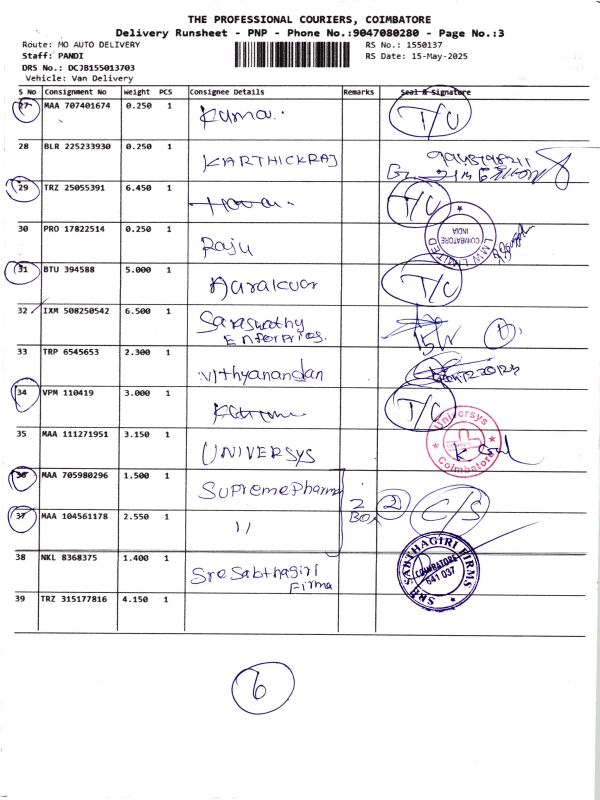 THE PROFESSIONAL COURIERS, COIMBATORE
Delivery Runsheet - PNP - Phone No.:9047080280 - Page No.:3
Route: MO AUTO DELIVERY
RS No.: 1550137
Staff: PANDI
RS Date: 15-May-2025
DRS No.: DCJB155013703
Vehicle: Van Delivery
S No Consignment No Weight PCS Consignee Details Remarks Seal & Signature
27 MAA 707401674 0.250 1 Kuma.. T/C
28 BLR 225233930 0.250 1 KARTHICKRAJ
29 TRZ 25055391 6.450 1 T/C
30 PRO 17822514 0.250 1 Raju LMW LIMITED COIMBATORE INDIA
31 BTU 394588 5.000 1 T/C
32 IXM 508250542 6.500 1 Saraswathy Enterprices.
33 TRP 6545653 2.300 1 Vithyanandan
34 VPM 110419 3.000 1 T/C
35 MAA 111271951 3.150 1 UNIVERSYS Universys Coimbatore
36 MAA 705980296 1.500 1 Supreme Pharma 2 Box 2 C/S
37 MAA 104561178 2.550 1 ''
38 NKL 8368375 1.400 1 Sre Sabthagiri Firma SRE SABTHAGIRI FIRMS COIMBATORE 641 037
39 TRZ 315177816 4.150 1
6